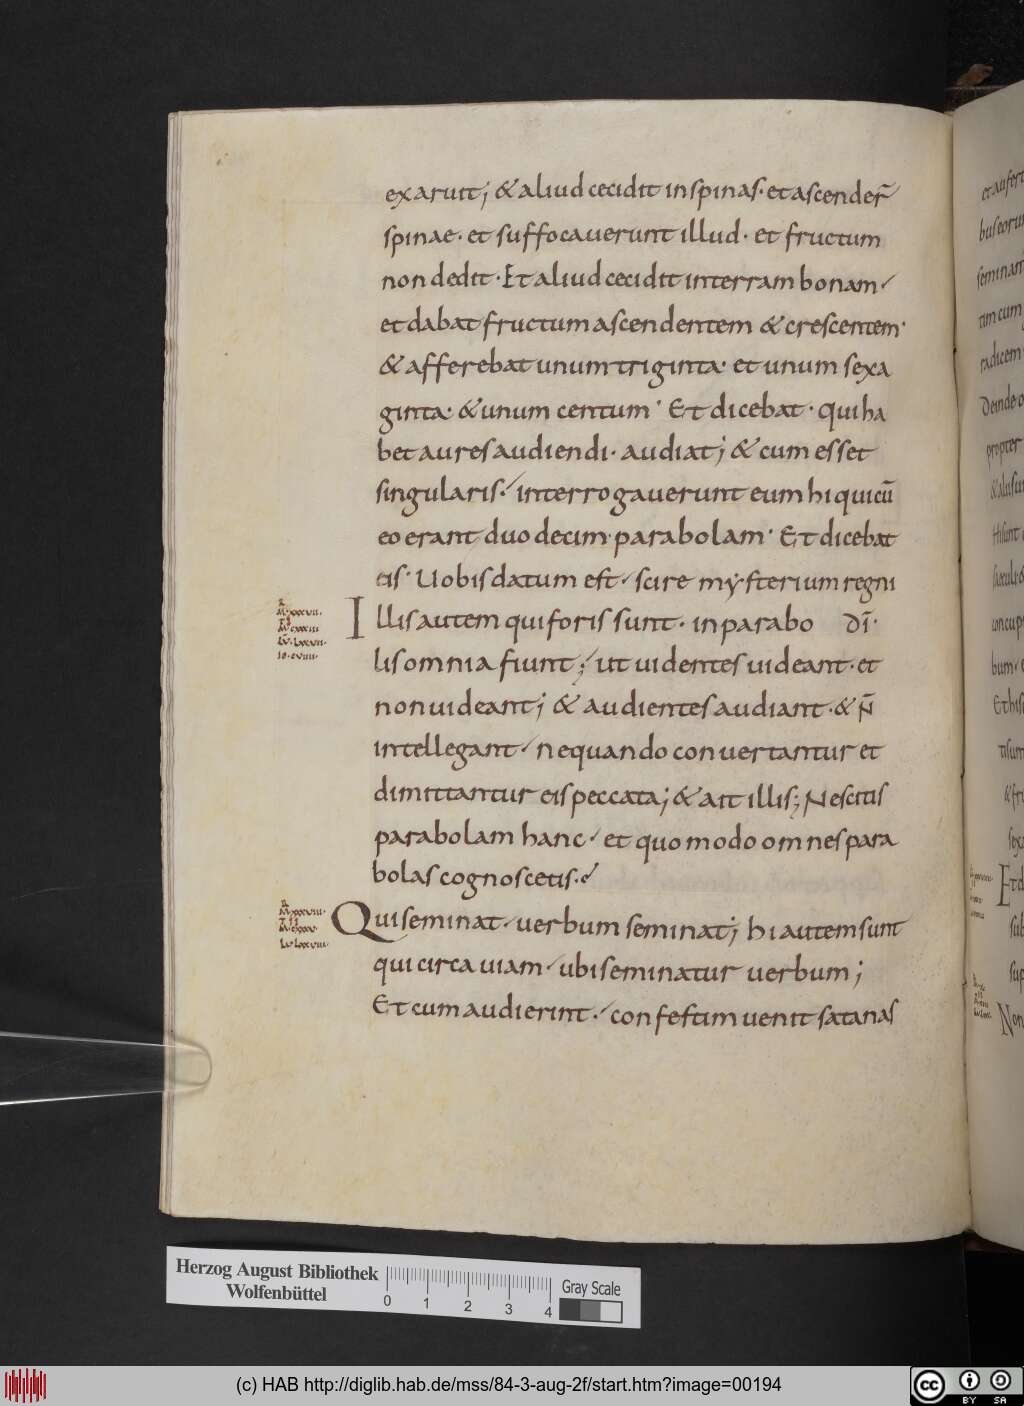 exaruit; & aliud cecidit in spinas· et ascender̄
spinae· et suffocauerunt illud· et fructum
non dedit· Et aliud cecidit in terram bonam·
et dabat fructum ascendentem & crescentem·
& afferebat unum triginta· et unum sexa
ginta· & unum centum· Et dicebat· qui ha
bet aures audiendi· audiat; & cum esset
singularis· interrogauerunt eum hi qui cū
eo erant duodecim· parabolam· Et dicebat
eis· Uobis datum est· scire mẏsterium regni
Illis autem qui foris sunt· in parabo dī·
lis omnia fiunt; ut uidentes uideant· et
non uideant; & audientes audiant· & n̄
intellegant· nequando conuertantur et
dimittantur eis peccata; & ait illis; Nescitis
parabolam hanc· et quomodo omnes para
bolas cognoscetis·
Qui seminat· uerbum seminat; hi autem sunt
qui circa uiam· ubi seminatur uerbum;
Et cum audierint· confestim uenit satanas
Herzog August Bibliothek
Wolfenbüttel
0 1 2 3 4
Gray Scale
(c) HAB http://diglib.hab.de/mss/84-3-aug-2f/start.htm?image=00194
cc BY SA